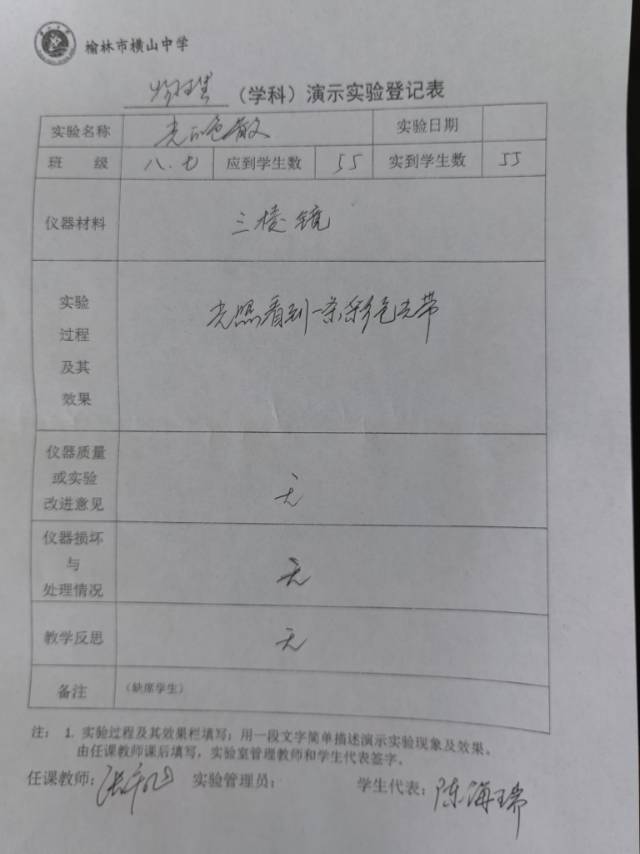 榆林市横山中学
物理（学科）演示实验登记表
实验名称 光的色散 实验日期
班 级 八.七 应到学生数 55 实到学生数 55
仪器材料 三棱镜
实验
过程
及其
效果
光照看到一条彩色光带
仪器质量
或实验
改进意见
无
仪器损坏
与
处理情况
无
教学反思 无
备注 （缺席学生）
注： 1. 实验过程及其效果栏填写：用一段文字简单描述演示实验现象及效果。
由任课教师课后填写，实验室管理教师和学生代表签字。
任课教师： 实验管理员： 学生代表：陈海瑞